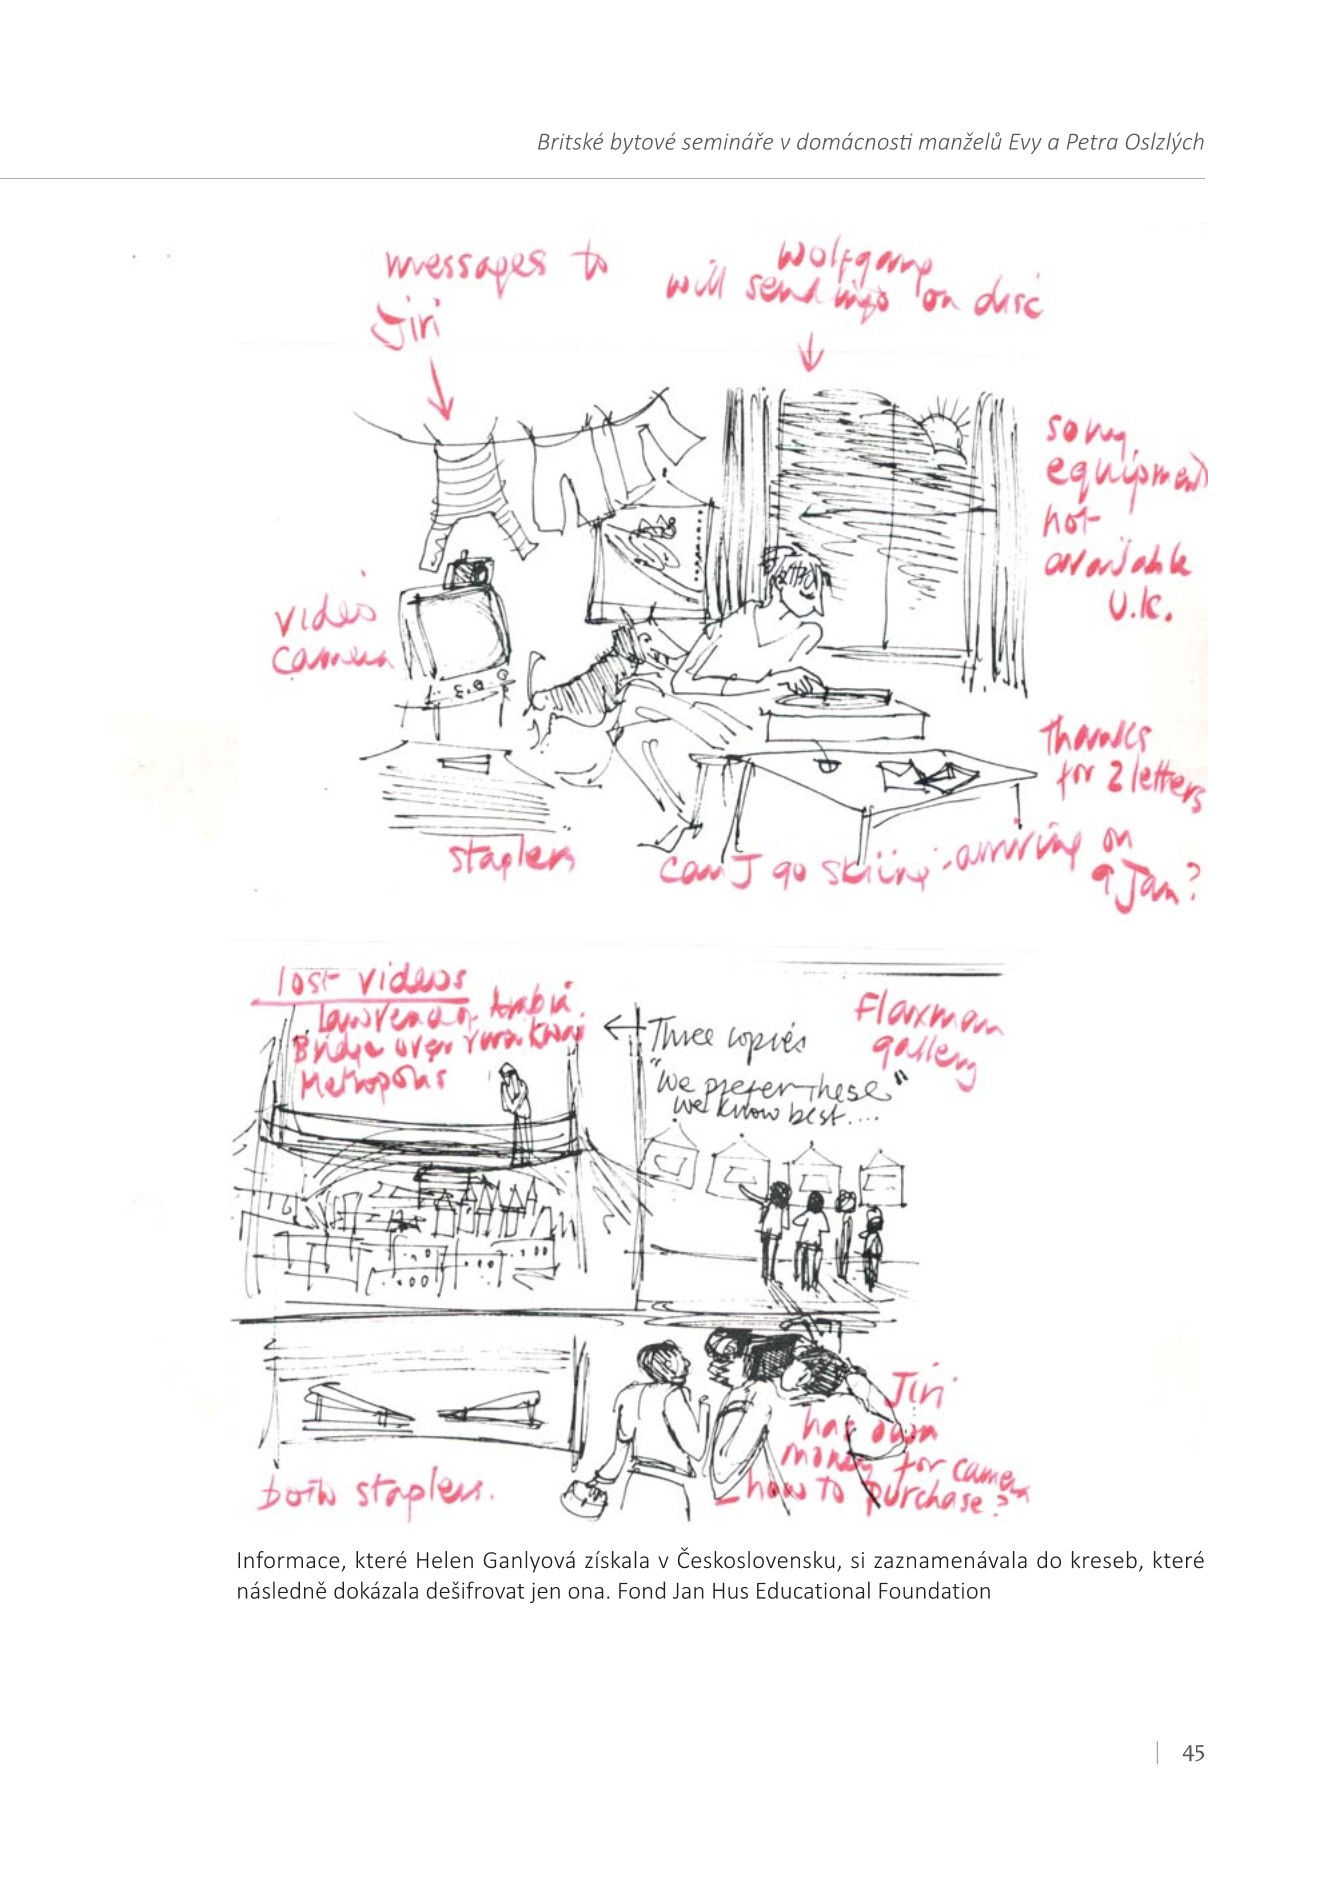 Britské bytové semináře v domácnosti manželů Evy a Petra Oslzlých
messages to
Jiri
Wolfgang
will send info on disc
sony
equipment
not
available
U.K.
video
camera
Thanks
for 2 letters
staplers
can I go skiing - arriving on
9 Jan?
lost videos
Lawrence of Arabia
Bridge over River Kwai
Metropolis
Three copies
"We prefer these"
we know best....
Flaxman
gallery
Jiri
has own
money for camera
how to purchase?
both staplers.
Informace, které Helen Ganlyová získala v Československu, si zaznamenávala do kreseb, které
následně dokázala dešifrovat jen ona. Fond Jan Hus Educational Foundation
| 45